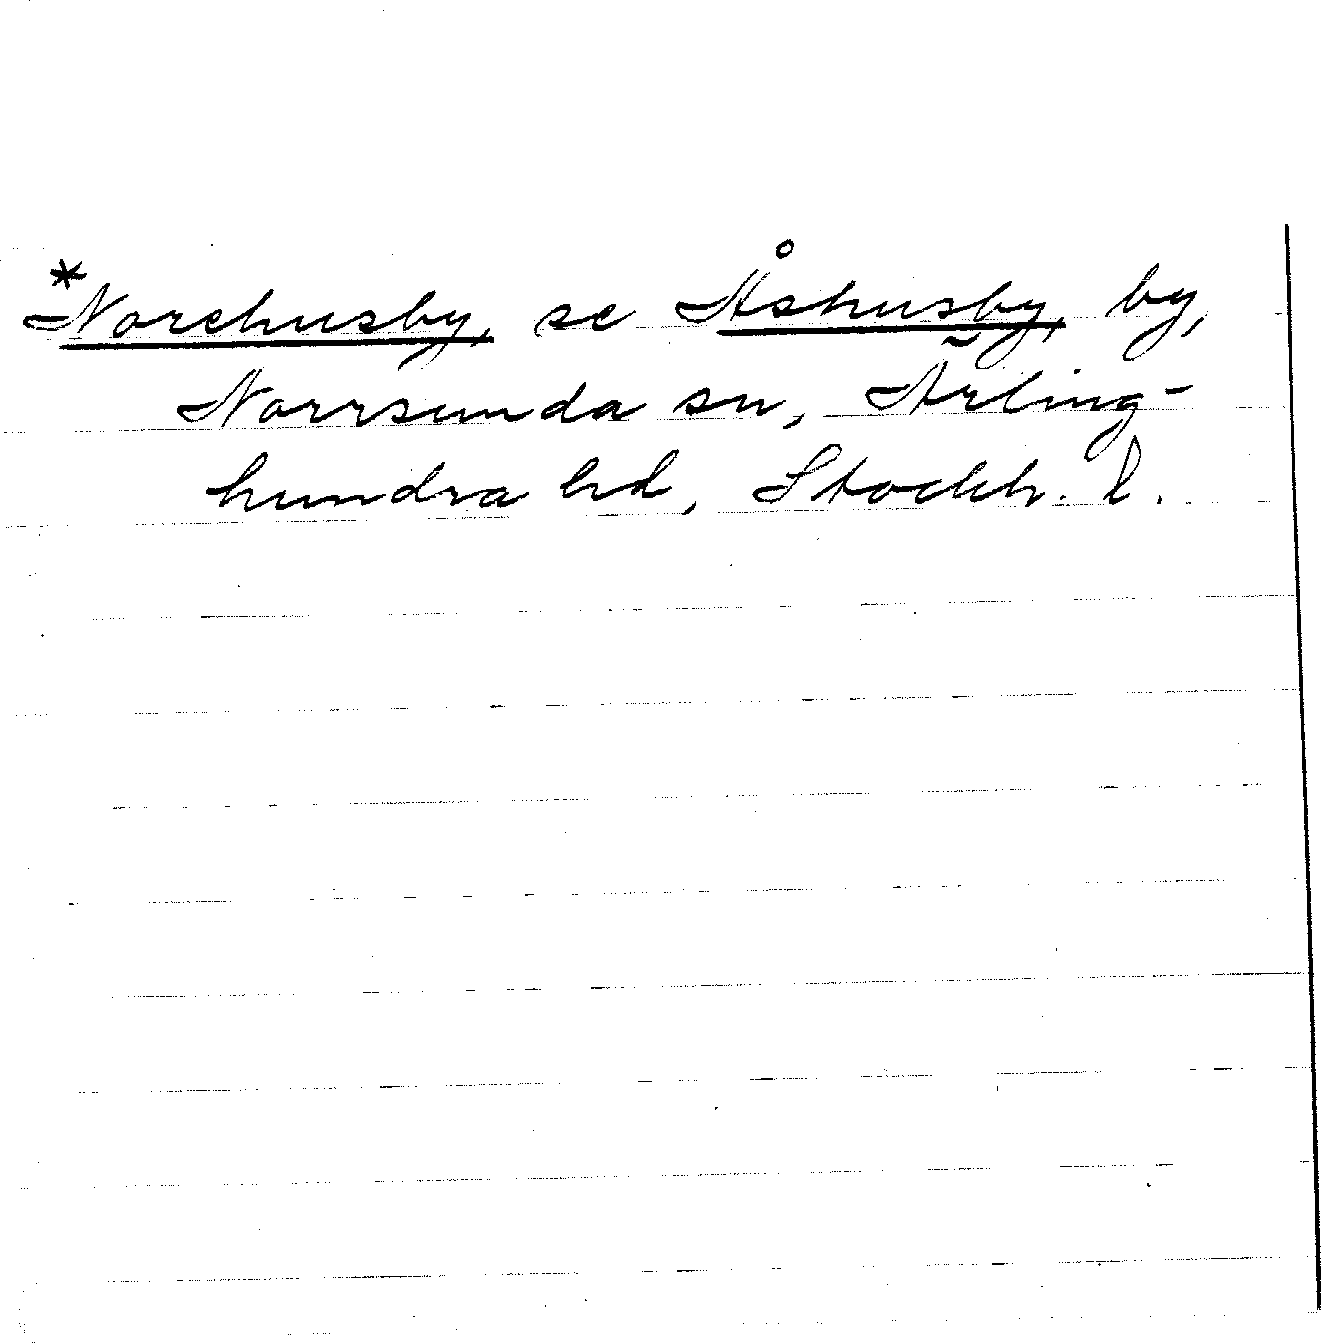 *Norehusby, se Åshusby, by,
Norrsunda sn, Ärling-
hundra hd, Stockh. l.